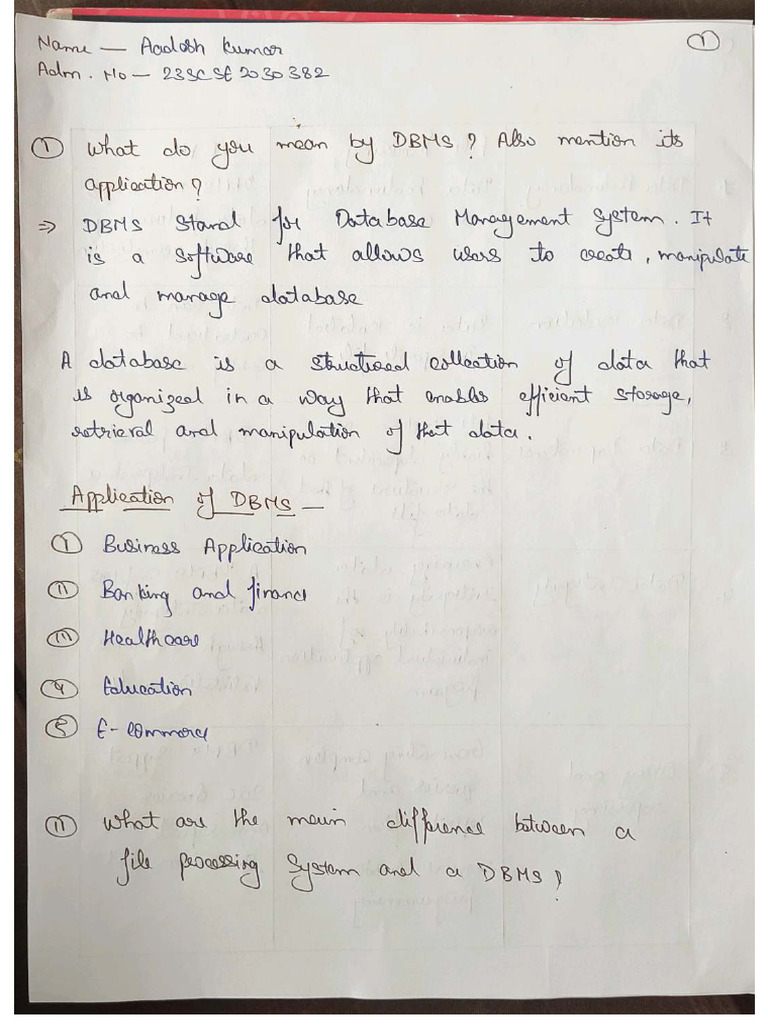 Name — Aadosh Kumar
①
Adm. No — 23SCSE2030382
① What do you mean by DBMS? Also mention its
application?
⇒ DBMS Stand for Database Management System. It
is a Software that allows users to create, manipulate
and manage database
A database is a structured collection of data that
is organized in a way that enables efficient storage,
retrieval and manipulation of that data.
Application of DBMS —
① Business Application
⑪ Banking and finance
⑪⑪ Healthcare
④ Education
⑤ E-commerce
⑪ What are the main difference between a
file processing System and a DBMS?